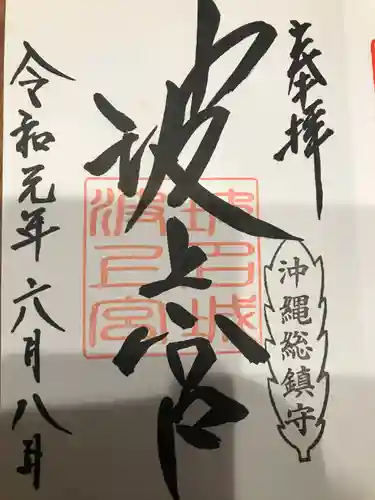 奉拝
沖縄総鎮守
波上宮
令和元年六月八日